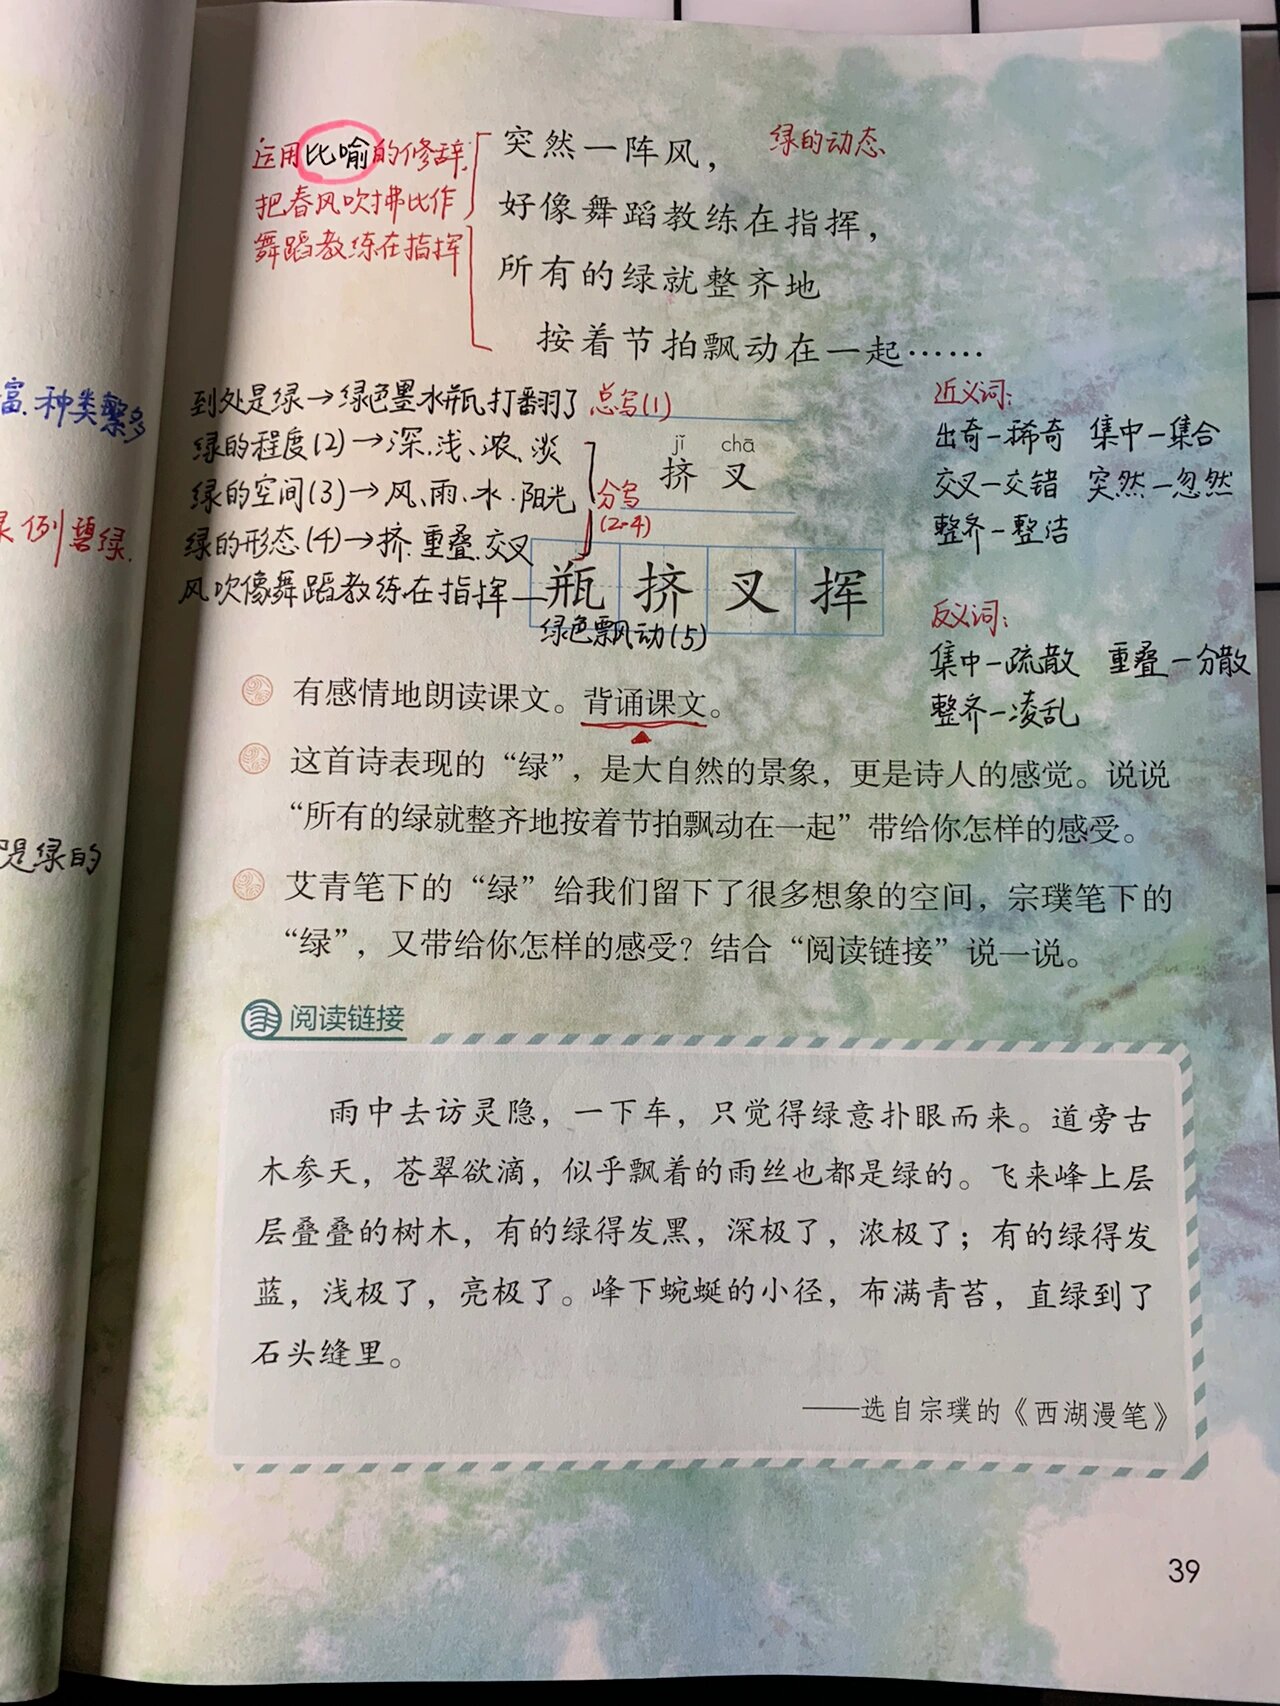 运用比喻的修辞,
把春风吹拂比作
舞蹈教练在指挥
突然一阵风，
绿的动态
好像舞蹈教练在指挥，
所有的绿就整齐地
按着节拍飘动在一起……
富.种类繁多
绿.
是绿的
到处是绿→绿色墨水瓶打翻了 总写(1)
绿的程度(2)→深.浅、浓、淡
绿的空间(3)→风、雨、水·阳光
分写
(2-4)
绿的形态(4)→挤.重叠.交叉
风吹像舞蹈教练在指挥—
绿色飘动(5)
jǐ chā
挤 叉
瓶 挤 叉 挥
近义词:
出奇—稀奇 集中—集合
交叉—交错 突然—忽然
整齐—整洁
反义词:
集中—疏散 重叠—分散
整齐—凌乱
有感情地朗读课文。背诵课文。
这首诗表现的“绿”，是大自然的景象，更是诗人的感觉。说说
“所有的绿就整齐地按着节拍飘动在一起”带给你怎样的感受。
艾青笔下的“绿”给我们留下了很多想象的空间，宗璞笔下的
“绿”，又带给你怎样的感受？结合“阅读链接”说一说。
阅读链接
雨中去访灵隐，一下车，只觉得绿意扑眼而来。道旁古
木参天，苍翠欲滴，似乎飘着的雨丝也都是绿的。飞来峰上层
层叠叠的树木，有的绿得发黑，深极了，浓极了；有的绿得发
蓝，浅极了，亮极了。峰下蜿蜒的小径，布满青苔，直绿到了
石头缝里。
——选自宗璞的《西湖漫笔》
39